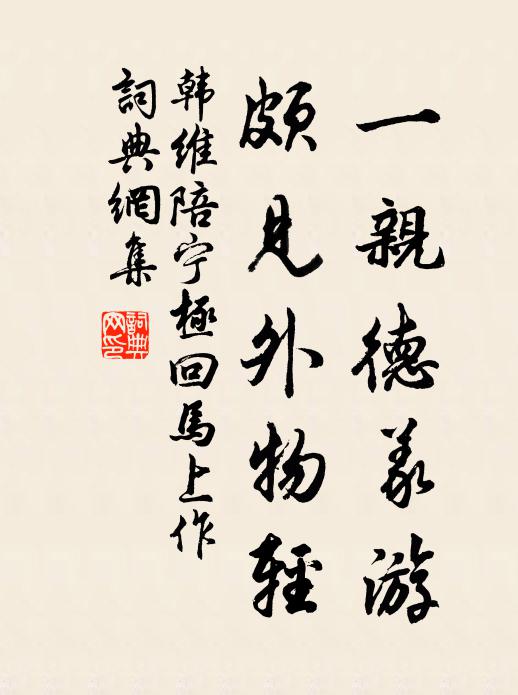 一親德義游
頗見外物輕
韩維陪宁極回馬上作
詞典網集
詞典
网印